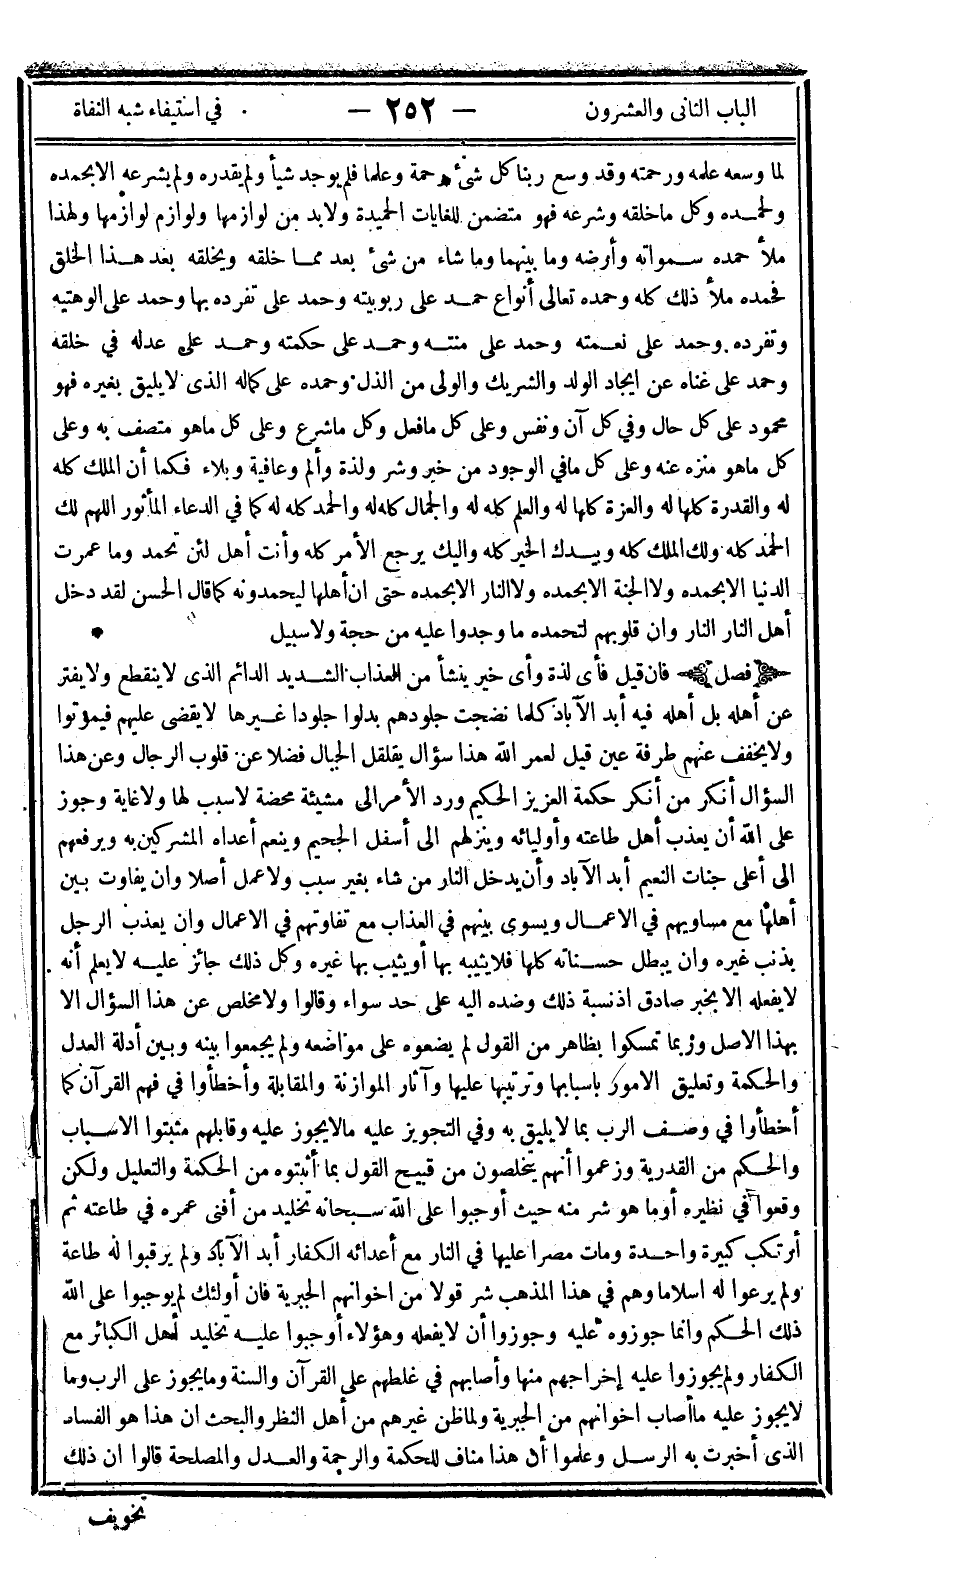 الباب الثانى والعشرون
— ٢٥٢ —
في استيفاء شبه النفاة
لما وسعه علمه ورحمته وقد وسع ربنا كل شئ رحمة وعلما فلم يوجد شيأ ولم يقدره ولم يشرعه الا بحمده
ولحمـده وكل ماخلقه وشرعه فهو متضمن للغايات الحميدة ولابد من لوازمها ولوازم لوازمها ولهذا
ملأ حمده سـمواته وأرضه وما بينهما وما شاء من شئ بعد ممـا خلقه ويخلقه بعد هـذا الخلق
فحمده ملأ ذلك كله وحمده تعالى أنواع حمـد على ربوبيته وحمد على تفرده بها وحمد على الوهتيه
وتفرده وحمد على نعـمته وحمد على منتـه وحمـد على حكمته وحمـد على عدله في خلقه
وحمد على غناه عن ايجاد الولد والشريك والولى من الذل وحمده على كماله الذى لايليق بغيره فهو
محمود على كل حال وفي كل آن ونفس وعلى كل مافعل وكل ماشرع وعلى كل ماهو متصف به وعلى
كل ماهو منزه عنه وعلى كل مافي الوجود من خير وشر ولذة وألم وعافية وبلاء فـكما أن الملك كله
له والقدرة كلها له والعزة كلها له والعلم كله له والجمال كله له والحمد كله له كما في الدعاء المأثور اللهم لك
الحمد كله ولك الملك كله وبيـدك الخير كله واليك يرجع الأمر كله وأنت أهل لئن تحمد وما عمرت
الدنيا الا بحمده ولا الجنة الا بحمده ولا النار الا بحمده حتى ان أهلها ليحمدونه كما قال الحسن لقد دخل
أهل النار النار وان قلوبهم لتحمده ما وجدوا عليه من حجة ولاسبيل
﴿فصل﴾ فان قيل فأى لذة وأى خير ينشأ من العذاب الشـديد الدائم الذى لاينقطع ولايفتر
عن أهله بل أهله فيه أبد الآباد كلما نضجت جلودهم بدلوا جلودا غـيرها لايقضى عليهم فيموتوا
ولايخفف عنهم طرفة عين قيل لعمر الله هذا سؤال يقلقل الجبال فضلا عن قلوب الرجال وعن هذا
السؤال أنكر من أنكر حكمة العزيز الحكيم ورد الأمر الى مشيئة محضة لاسبب لها ولاغاية وجوز
على الله أن يعذب أهل طاعته وأوليائه وينزلهم الى أسفل الجحيم وينعم أعداه المشركين به ويرفعهم
الى أعلى جنات النعيم أبد الآباد وأن يدخل النار من شاء بغير سبب ولاعمل أصلا وان يفاوت بـين
أهلها مع مساويهم في الاعمـال ويسوى بينهم في العذاب مع تفاوتهم في الاعمال وان يعذب الرجل
بذنب غيره وان يبطل حسـناته كلها فلايثيبه بها أو يثيب بها غيره وكل ذلك جائز عليـه لايعلم أنه
لايفعله الا بخبر صادق اذ نسبة ذلك وضده اليه على حد سواء وقالوا ولامخلص عن هذا السؤال الا
بهذا الاصل وربما تمسكوا بظاهر من القول لم يضعوه على مواضعه ولم يجمعوا بينه وبـين أدلة العدل
والحكمة وتعليق الامور باسبابها وترتيبها عليها وآثار الموازنة والمقابلة وأخطأوا في فهم القرآن كما
أخطأوا في وصـف الرب بما لايليق به وفي التجويز عليه مالايجوز عليه وقابلهم مثبتوا الاسـباب
والحـكم من القدرية وزعموا أنهم يتخلصون من قبيـح القول بما أثبتوه من الحكمة والتعليل ولـكن
وقعوا في نظيره أوما هو شر منه حيث أوجبوا على الله سـبحانه تخليد من أفنى عمره في طاعته ثم
أرتكب كبيرة واحـدة ومات مصرا عليها في النار مع أعدائه الـكفار أبد الآباد ولم يرقبوا له طاعة
ولم يرعوا له اسلاما وهم في هذا المذهب شر قولا من اخوانهم الجبرية فان أولئك لم يوجبوا على الله
ذلك الحـكم وانما جوزوه عليه وجوزوا أن لايفعله وهؤلاء أوجبوا عليـه تخليد أهل الـكبائر مع
الـكفار ولم يجوزوا عليه إخراجهم منها وأصابهم في غلطهم على القرآن والسنة ومايجوز على الرب وما
لايجوز عليه ماأصاب اخوانهم من الجبرية ولماظن غيرهم من أهل النظر والبحث ان هذا هو الفساد
الذى أخبرت به الرسـل وعلموا أن هذا مناف للحكمة والرحمة والعـدل والمصلحة قالوا ان ذلك
تخويف